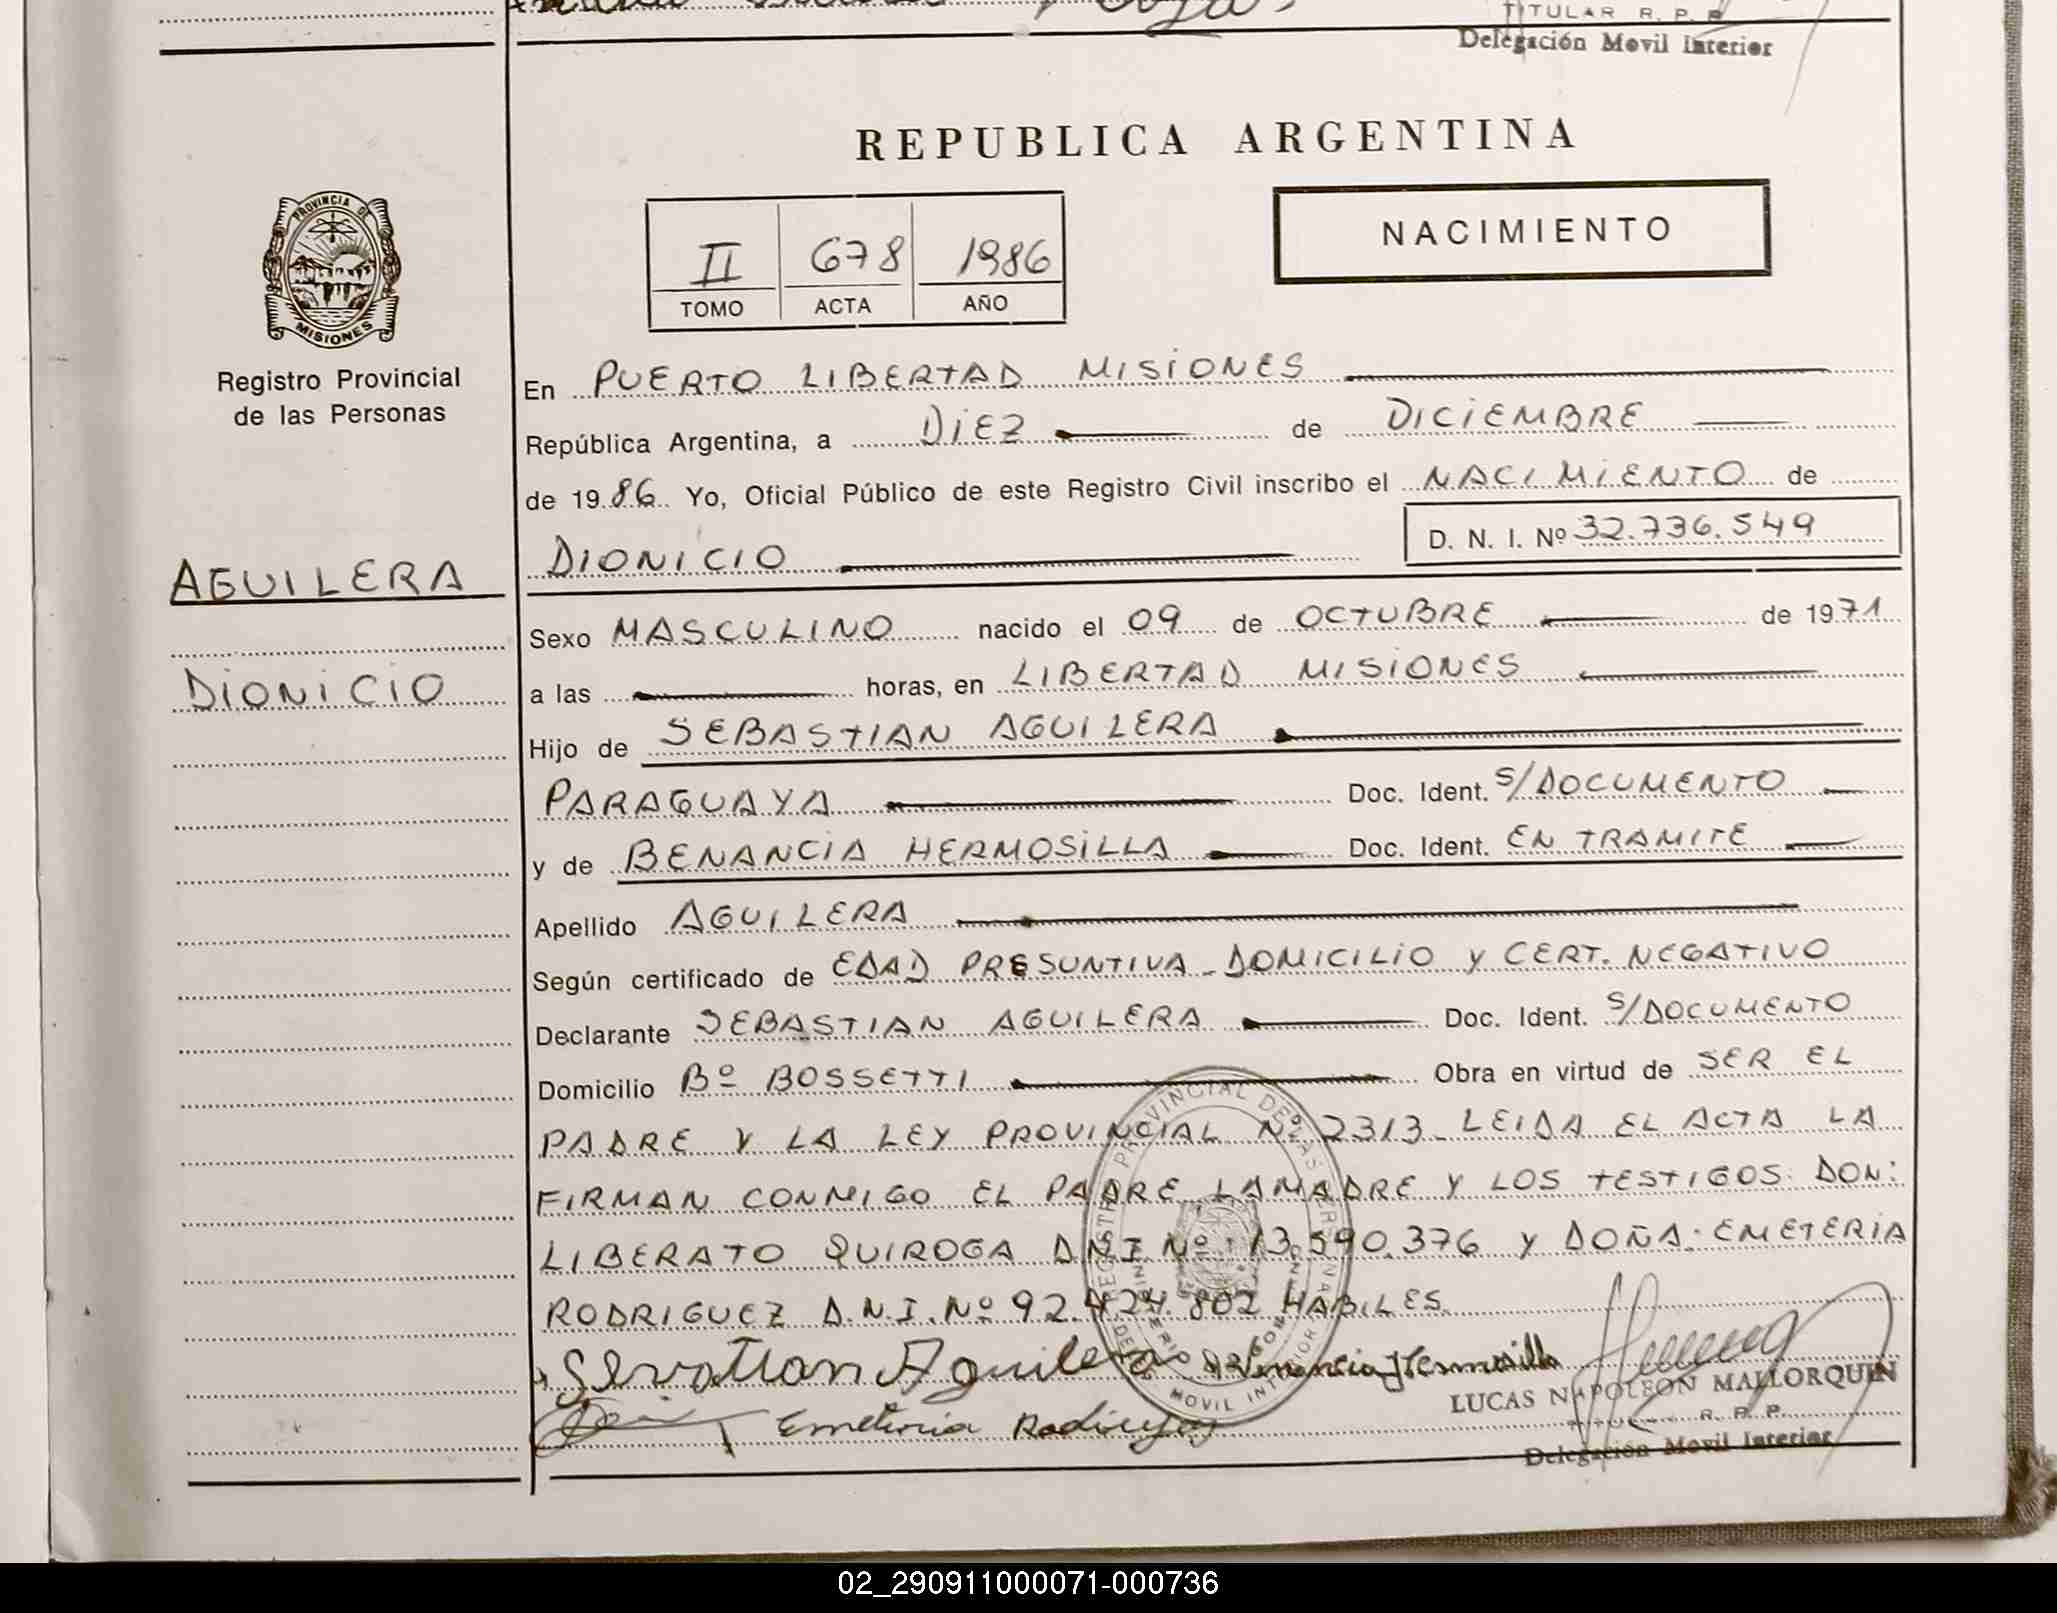 TITULAR R. P. P.
Delegación Movil Interior
REPUBLICA ARGENTINA
PROVINCIA DE
MISIONES
Registro Provincial
de las Personas
II 678 1986
TOMO ACTA AÑO
NACIMIENTO
En PUERTO LIBERTAD MISIONES
República Argentina, a DIEZ de DICIEMBRE
de 1986 Yo, Oficial Público de este Registro Civil inscribo el NACIMIENTO de
DIONICIO D. N. I. Nº 32.736.549
AGUILERA
DIONICIO
Sexo MASCULINO nacido el 09 de OCTUBRE de 1971
a las horas, en LIBERTAD MISIONES
Hijo de SEBASTIAN AGUILERA
PARAGUAYA Doc. Ident. S/DOCUMENTO
y de BENANCIA HERMOSILLA Doc. Ident. EN TRAMITE
Apellido AGUILERA
Según certificado de EDAD PRESUNTIVA - DOMICILIO Y CERT. NEGATIVO
Declarante SEBASTIAN AGUILERA Doc. Ident. S/DOCUMENTO
Domicilio Bº BOSSETTI Obra en virtud de SER EL
PADRE Y LA LEY PROVINCIAL Nº 2313 - LEIDA EL ACTA LA
FIRMAN CONMIGO EL PADRE, LA MADRE Y LOS TESTIGOS DON:
LIBERATO QUIROGA DNI Nº 13.590.376 Y DOÑA: EMETERIA
RODRIGUEZ D.N.I. Nº 92.424.802 HABILES.
Servatian Aguilera Venancia Hermosilla
LUCAS NAPOLEON MALLORQUIN
Emeteria Rodriguez
TITULAR R. P. P.
Delegación Movil Interior
02_290911000071-000736